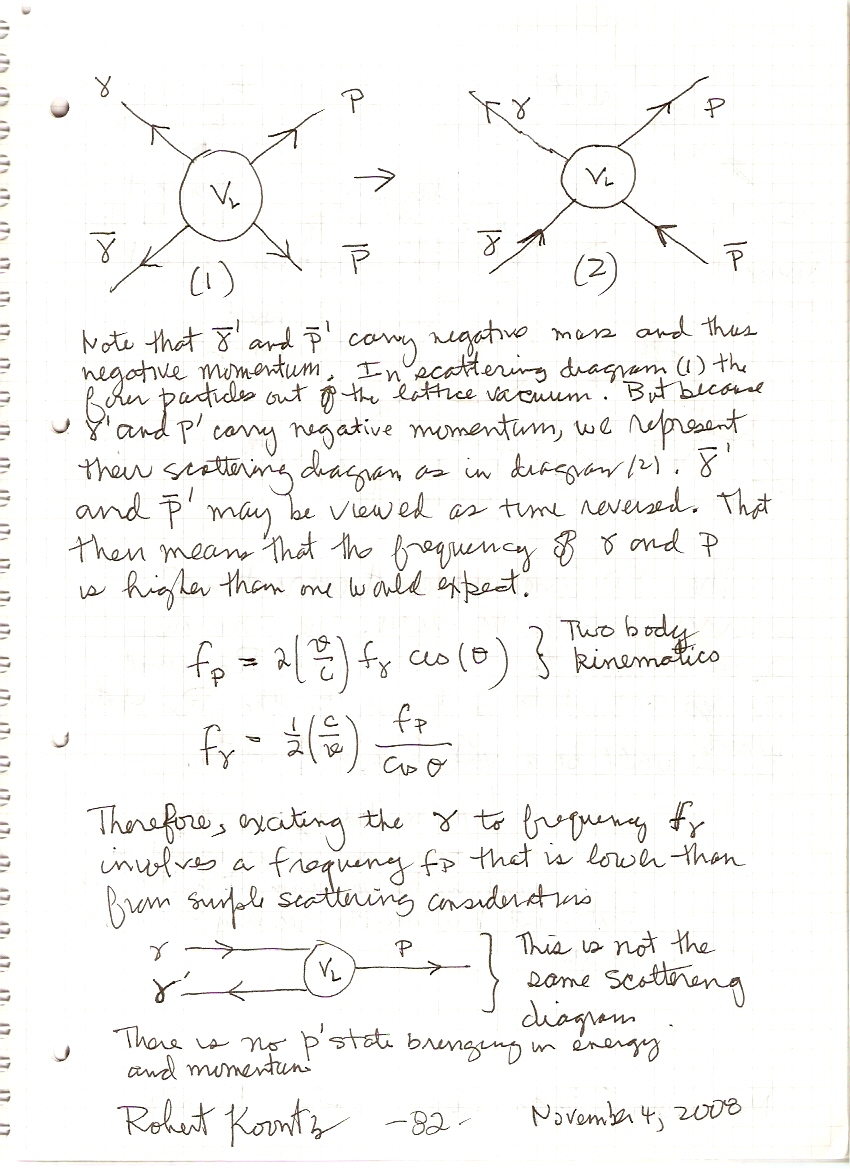 γ P γ P
V_L V_L
→
γ̅ P̅ γ̅ P̅
(1) (2)
Note that γ̅' and p̅' carry negative mass and thus
negative momentum. In scattering diagram (1) the
four particles out of the lattice vacuum. But because
γ' and p' carry negative momentum, we represent
their scattering diagram as in diagram (2). γ̅'
and p̅' may be viewed as time reversed. That
then means that the frequency of γ and P
is higher than one would expect.
f_p = 2(v/c) f_γ cos(θ) } Two body
kinematics
f_γ = 1/2 (c/v) f_p / cos θ
Therefore, exciting the γ to frequency f_γ
involves a frequency f_p that is lower than
from simple scattering considerations
γ V_L P } This is not the
γ' same scattering
diagram.
There is no p' state bringing in energy
and momentum.
Robert Koontz -82- November 4, 2008